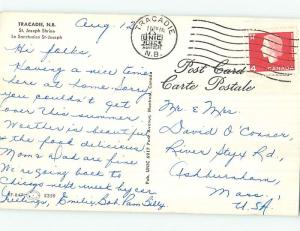 TRACADIE, N.B.
St. Joseph Shrine
Le Sanctuaire St-Joseph
Aug. 13
TRACADIE
N.B.
4
CANADA
Hi folks,
Having a nice time
here at home. Sorry
you couldn't get
one this summer.
Weather is beautiful
& the food delicious
Mom & Dad are fine
We are going back to
Chicago next week by car
Feelings, Emily, Bob, Pam, Billy
Post Card
Carte Postale
Pub. UNIC Montreal Canada
Mr. & Mrs.
David O'Connor
River Styx Rd.,
Ashburnham,
Mass.
U.S.A.